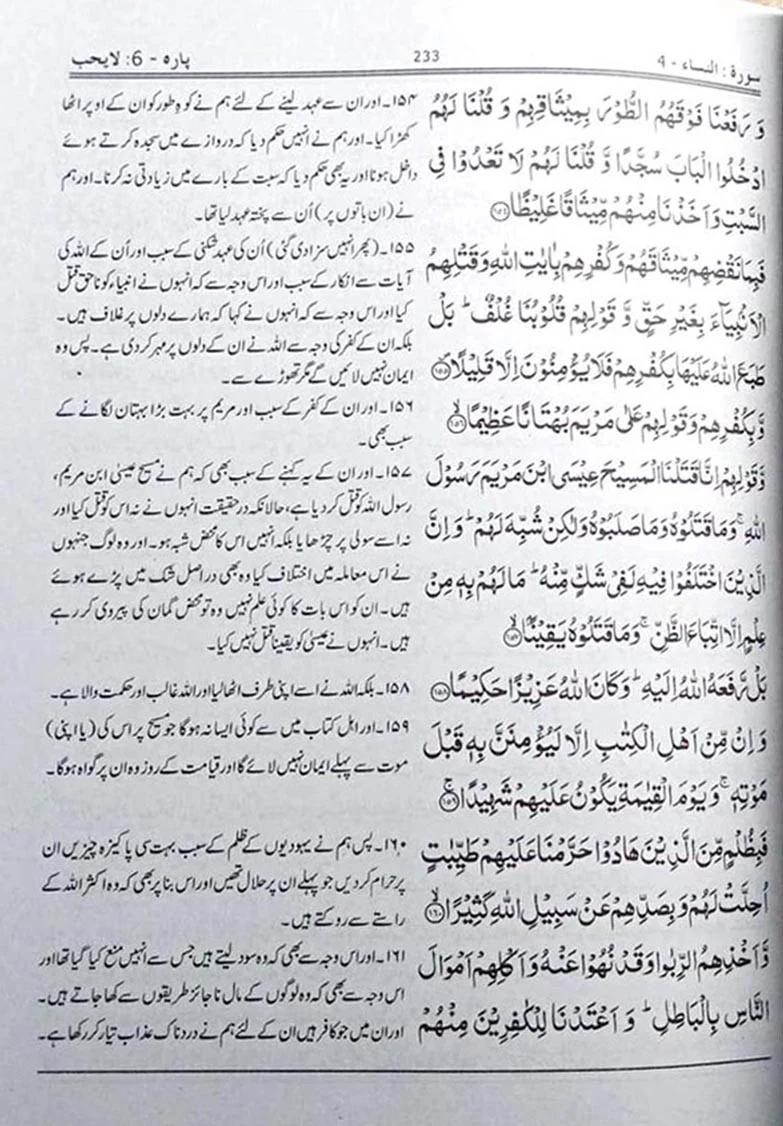 سورة : النساء - 4
233
پارہ - 6: لایحب
وَ رَفَعْنَا فَوْقَهُمُ الطُّوْرَ بِمِيْثَاقِهِمْ وَ قُلْنَا لَهُمُ
ادْخُلُوا الْبَابَ سُجَّدًا وَّ قُلْنَا لَهُمْ لَا تَعْدُوْا فِي
السَّبْتِ وَ اَخَذْنَا مِنْهُمْ مِّيْثَاقًا غَلِيْظًا ۝١٥٤
فَبِمَا نَقْضِهِمْ مِّيْثَاقَهُمْ وَ كُفْرِهِمْ بِاٰيٰتِ اللّٰهِ وَ قَتْلِهِمُ
الْاَنْۢبِيَآءَ بِغَيْرِ حَقٍّ وَّ قَوْلِهِمْ قُلُوْبُنَا غُلْفٌ ؕ بَلْ
طَبَعَ اللّٰهُ عَلَيْهَا بِكُفْرِهِمْ فَلَا يُؤْمِنُوْنَ اِلَّا قَلِيْلًا ۝١٥٥
وَّ بِكُفْرِهِمْ وَ قَوْلِهِمْ عَلٰى مَرْيَمَ بُهْتَانًا عَظِيْمًا ۝١٥٦
وَّ قَوْلِهِمْ اِنَّا قَتَلْنَا الْمَسِيْحَ عِيْسَى ابْنَ مَرْيَمَ رَسُوْلَ
اللّٰهِ ۚ وَ مَا قَتَلُوْهُ وَ مَا صَلَبُوْهُ وَ لٰكِنْ شُبِّهَ لَهُمْ ؕ وَ اِنَّ
الَّذِيْنَ اخْتَلَفُوْا فِيْهِ لَفِيْ شَكٍّ مِّنْهُ ؕ مَا لَهُمْ بِهٖ مِنْ
عِلْمٍ اِلَّا اتِّبَاعَ الظَّنِّ ۚ وَ مَا قَتَلُوْهُ يَقِيْنًۢا ۝١٥٧
بَلْ رَّفَعَهُ اللّٰهُ اِلَيْهِ ؕ وَ كَانَ اللّٰهُ عَزِيْزًا حَكِيْمًا ۝١٥٨
وَ اِنْ مِّنْ اَهْلِ الْكِتٰبِ اِلَّا لَيُؤْمِنَنَّ بِهٖ قَبْلَ
مَوْتِهٖ ۚ وَ يَوْمَ الْقِيٰمَةِ يَكُوْنُ عَلَيْهِمْ شَهِيْدًا ۝١٥٩
فَبِظُلْمٍ مِّنَ الَّذِيْنَ هَادُوْا حَرَّمْنَا عَلَيْهِمْ طَيِّبٰتٍ
اُحِلَّتْ لَهُمْ وَ بِصَدِّهِمْ عَنْ سَبِيْلِ اللّٰهِ كَثِيْرًا ۝١٦٠
وَّ اَخْذِهِمُ الرِّبٰوا وَ قَدْ نُهُوْا عَنْهُ وَ اَكْلِهِمْ اَمْوَالَ
النَّاسِ بِالْبَاطِلِ ؕ وَ اَعْتَدْنَا لِلْكٰفِرِيْنَ مِنْهُمْ
۱۵۴۔ اور ان سے عہد لینے کے لئے ہم نے کوہِ طور کو ان کے اوپر اٹھا
کھڑا کیا۔ اور ہم نے انہیں حکم دیا کہ دروازے میں سجدہ کرتے ہوئے
داخل ہونا اور یہ بھی حکم دیا کہ سبت کے بارے میں زیادتی نہ کرنا۔ اور ہم
نے (ان باتوں پر) اُن سے پختہ عہد لیا تھا۔
۱۵۵۔ (پھر انہیں سزا دی گئی) اُن کی عہد شکنی کے سبب اور اُن کے اللہ کی
آیات سے انکار کے سبب اور اس وجہ سے کہ انہوں نے انبیاء کو ناحق قتل
کیا اور اس وجہ سے کہ انہوں نے کہا کہ ہمارے دلوں پر غلاف ہیں۔
بلکہ ان کے کفر کی وجہ سے اللہ نے ان کے دلوں پر مہر کر دی ہے۔ پس وہ
ایمان نہیں لائیں گے مگر تھوڑے سے۔
۱۵۶۔ اور ان کے کفر کے سبب اور مریم پر بہت بڑا بہتان لگانے کے
سبب بھی۔
۱۵۷۔ اور ان کے یہ کہنے کے سبب بھی کہ ہم نے مسیح عیسیٰ ابن مریم،
رسول اللہ کو قتل کر دیا ہے، حالانکہ درحقیقت انہوں نے نہ اس کو قتل کیا اور
نہ اسے سولی پر چڑھایا بلکہ انہیں اس کا محض شبہ ہو۔ اور وہ لوگ جنہوں
نے اس معاملہ میں اختلاف کیا وہ بھی دراصل شک میں پڑے ہوئے
ہیں۔ ان کو اس بات کا کوئی علم نہیں وہ تو محض گمان کی پیروی کر رہے
ہیں۔ انہوں نے عیسیٰ کو یقینا قتل نہیں کیا۔
۱۵۸۔ بلکہ اللہ نے اسے اپنی طرف اٹھا لیا اور اللہ غالب اور حکمت والا ہے۔
۱۵۹۔ اور اہل کتاب میں سے کوئی ایسا نہ ہوگا جو مسیح پر اس کی (یا اپنی)
موت سے پہلے ایمان نہیں لائے گا اور قیامت کے روز وہ ان پر گواہ ہوگا۔
۱۶۰۔ پس ہم نے یہودیوں کے ظلم کے سبب بہت سی پاکیزہ چیزیں ان
پر حرام کر دیں جو پہلے ان پر حلال تھیں اور اس بنا پر بھی کہ وہ اکثر اللہ کے
راستے سے روکتے ہیں۔
۱۶۱۔ اور اس وجہ سے بھی کہ وہ سود لیتے ہیں جس سے انہیں منع کیا گیا تھا اور
اس وجہ سے بھی کہ وہ لوگوں کے مال ناجائز طریقوں سے کھا جاتے ہیں۔
اور ان میں جو کافر ہیں ان کے لئے ہم نے دردناک عذاب تیار کر رکھا ہے۔